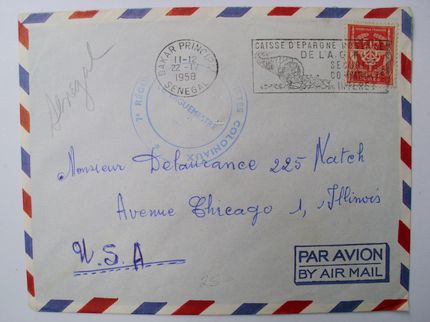 Sénégal
DAKAR PRINCIPAL
11-12
22-IV
1958
SENEGAL
CAISSE D'EPARGNE
DE LA
INTERET
7e REGI
COLONIAUX
VAGUEMESTRE
Monsieur Delaurance 225 Natch
Avenue Chicago 1, Illinois
U.S.A
PAR AVION
BY AIR MAIL
25